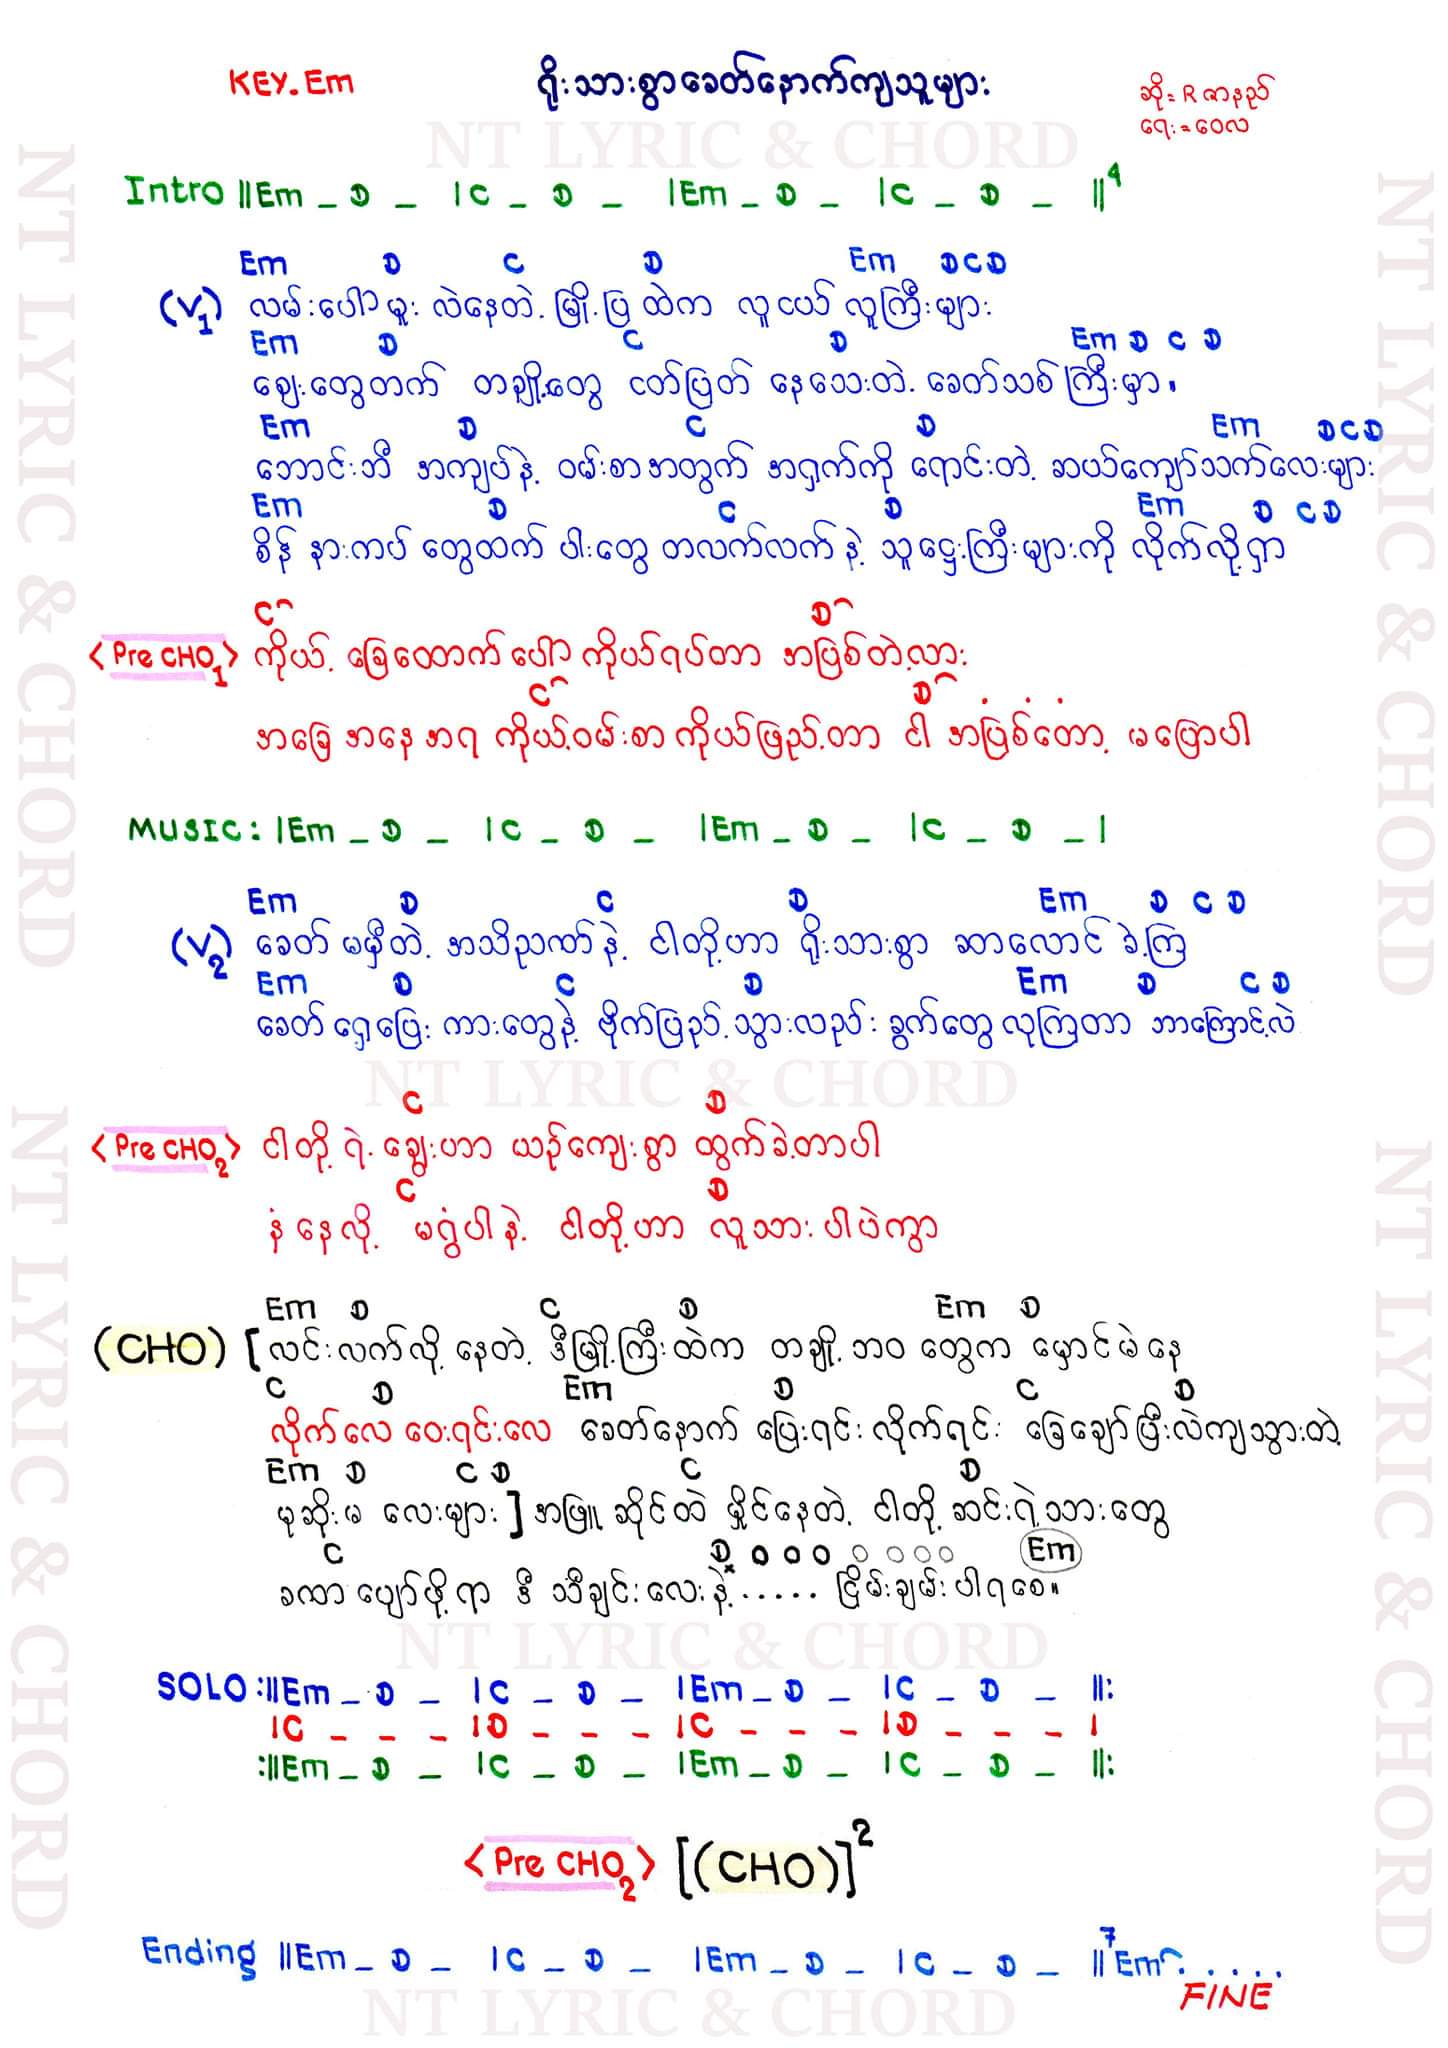 KEY.Em
ရိုးသားစွာခေတ်နောက်ကျသူများ
ဆို= R ဇာနည်
ရေး = ဝေလ
NT LYRIC & CHORD
Intro ||Em _ D _ | C _ D _ |Em _ D _ | C _ D _ ||4
Em D C D Em D C D
(V1) လမ်းပေါ်မူး လဲနေတဲ့ မြို့ပြ ထဲက လူငယ် လူကြီးများ
Em D C D Em D C D
ဈေးတွေတက် တချို့တွေ ငတ်ပြတ် နေသေးတဲ့ ခေတ်သစ်ကြီးမှာ။
Em D C D Em D C D
ဘောင်းဘီ အကျပ်နဲ့ ဝမ်းစာအတွက် အရှက်ကို ရောင်းတဲ့ ဆယ်ကျော်သက်လေးများ
Em D C D Em D C D
စိန် နားကပ် တွေထက် ပါးတွေ တလက်လက် နဲ့ သူဌေးကြီးများကို လိုက်လို့ရှာ
C D
<Pre CHO1> ကိုယ့် ခြေထောက်ပေါ် ကိုယ်ရပ်တာ အပြစ်တဲ့လား
C D . . .
အခြေ အနေ အရ ကိုယ့်ဝမ်းစာ ကိုယ်ဖြည့်တာ ငါ အပြစ်တော့ မပြောပါ
MUSIC: |Em _ D _ | C _ D _ |Em _ D _ | C _ D _ |
Em D C D Em D C D
(V2) ခေတ် မမှီတဲ့ အသိဉာဏ်နဲ့ ငါတို့ဟာ ရိုးသားစွာ ဆာလောင် ခဲ့ကြ
Em D C D Em D C D
ခေတ် ရှေ့ပြေး ကားတွေနဲ့ ဗိုက်ပြည့် သွားလည်း ခွက်တွေ လုကြတာ ဘာကြောင့်လဲ
NT LYRIC & CHORD
C D
<Pre CHO2> ငါတို့ ရဲ့ ချွေးဟာ ယဉ်ကျေးစွာ ထွက်ခဲ့တာပါ
C D
နံနေလို့ မရွံပါနဲ့ ငါတို့ဟာ လူသားပါပဲကွာ
Em D C D Em D
(CHO) [လင်းလက်လို့ နေတဲ့ ဒီမြို့ကြီးထဲက တချို့ ဘဝ တွေက မှောင်မဲနေ
C D Em D C D
လိုက်လေ ဝေးရင်းလေ ခေတ်နောက် ပြေးရင်း လိုက်ရင်း ခြေချော်ပြီးလဲကျသွားတဲ့
Em D C D C D
မုဆိုးမ လေးများ] အဖြူ ဆိုင်ထဲ မှိုင်နေတဲ့ ငါတို့ ဆင်းရဲသားတွေ
C D o o o o o o o Em
ခဏာ ပျော်ဖို့ရာ ဒီ သီချင်းလေးနဲ့..... ငြိမ်းချမ်းပါရစေ။
NT LYRIC & CHORD
SOLO :||Em _ D _ | C _ D _ |Em _ D _ | C _ D _ ||:
|C _ _ _ |D _ _ _ |C _ _ _ |D _ _ _ |
:||Em _ D _ | C _ D _ |Em _ D _ | C _ D _ ||:
<Pre CHO2> [(CHO)]2
Ending ||Em _ D _ | C _ D _ |Em _ D _ | C _ D _ ||7 Em.....
FINE
NT LYRIC & CHORD
NT LYRIC & CHORD
NT LYRIC & CHORD
NT LYRIC & CHORD
NT LYRIC & CHORD